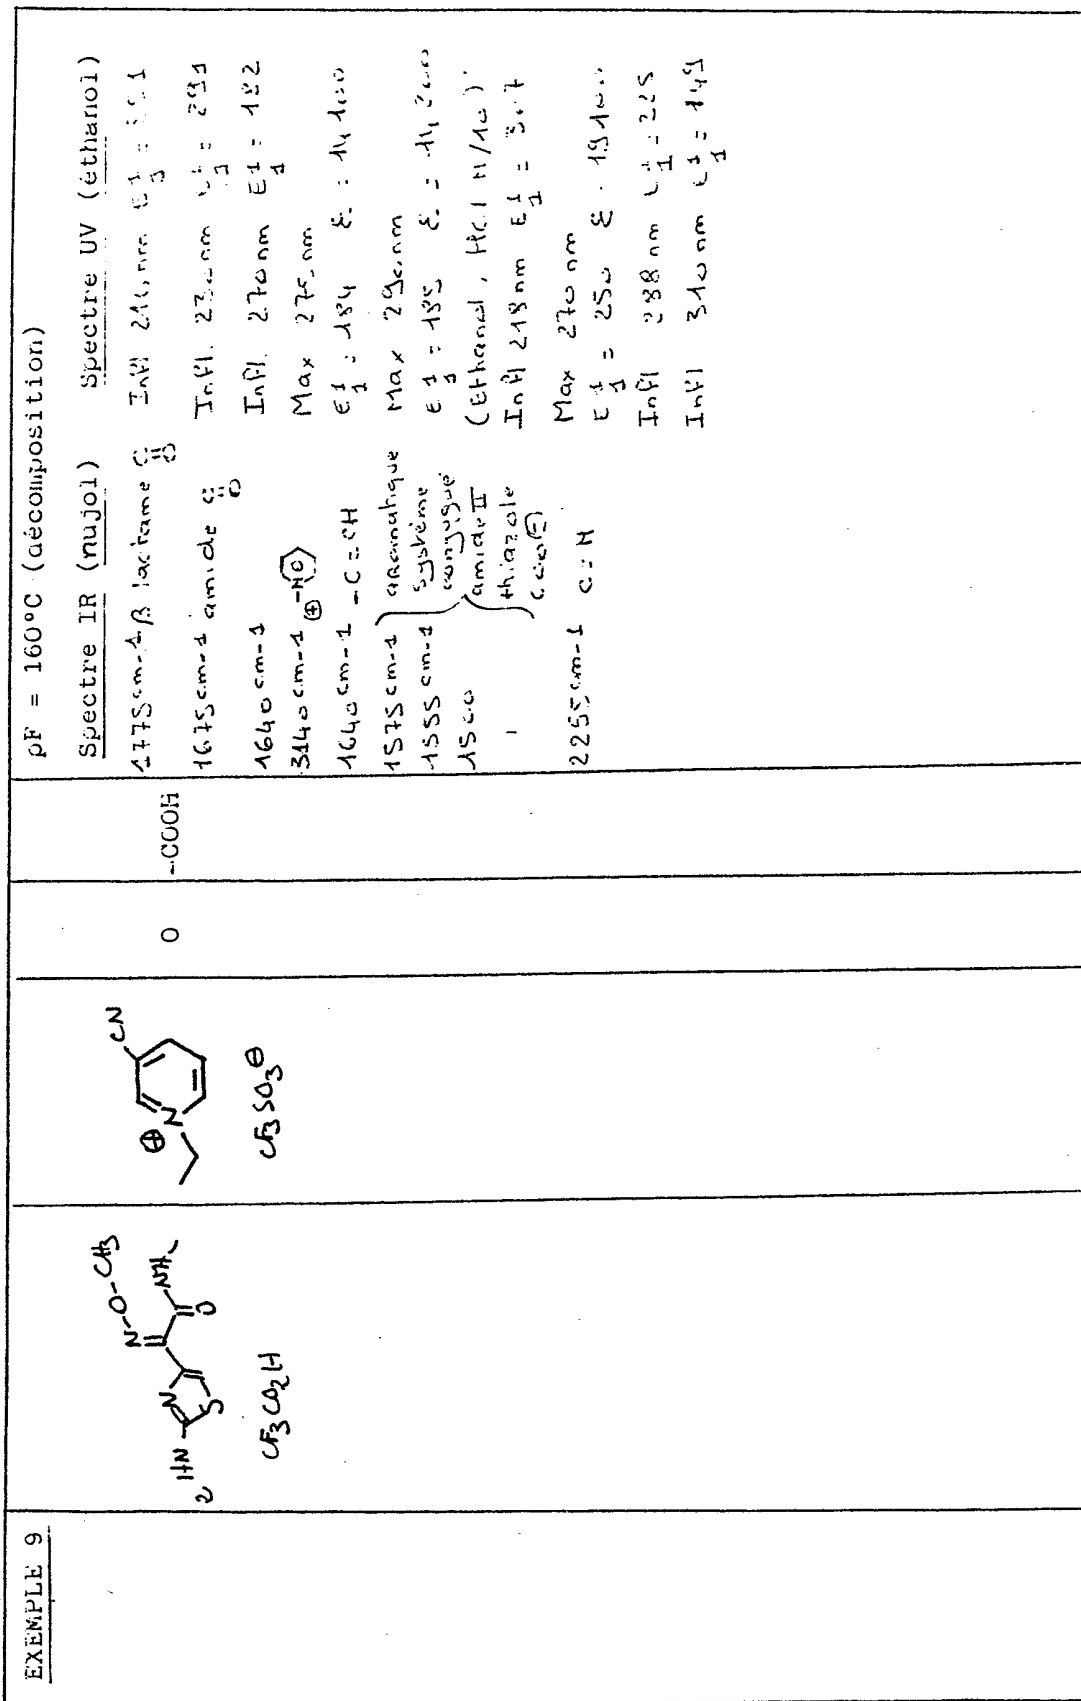 EXEMPLE 9
N-O-CH3
NH
O
N
S
2 HN
CF3CO2H
CN
N
⊕
CF3SO3⊖
O
-COOH
pF = 160°C (décomposition)
Spectre IR (nujol)
1775 cm-1 β lactame C=O
1675 cm-1 amide C=O
1640 cm-1
3140 cm-1
1640 cm-1 -C=CH
1575 cm-1 aromatique
1555 cm-1 système
1500 conjugué
amide II
thiazole
COO⊖
2255 cm-1 C≡N
Spectre UV (éthanol)
Infl. 230 nm = 291
Infl. 270 nm E1/1 = 182
Max 275 nm
E1/1 = 184 ε = 14 100
Max 290 nm
E1/1 = 185 ε = 14 200
(Ethanol, HCl N/10)
Infl 218 nm E1/1 = 307
Max 270 nm
E1/1 = 250 ε = 19100
Infl 288 nm E1/1 = 225
Infl 310 nm E1/1 = 149